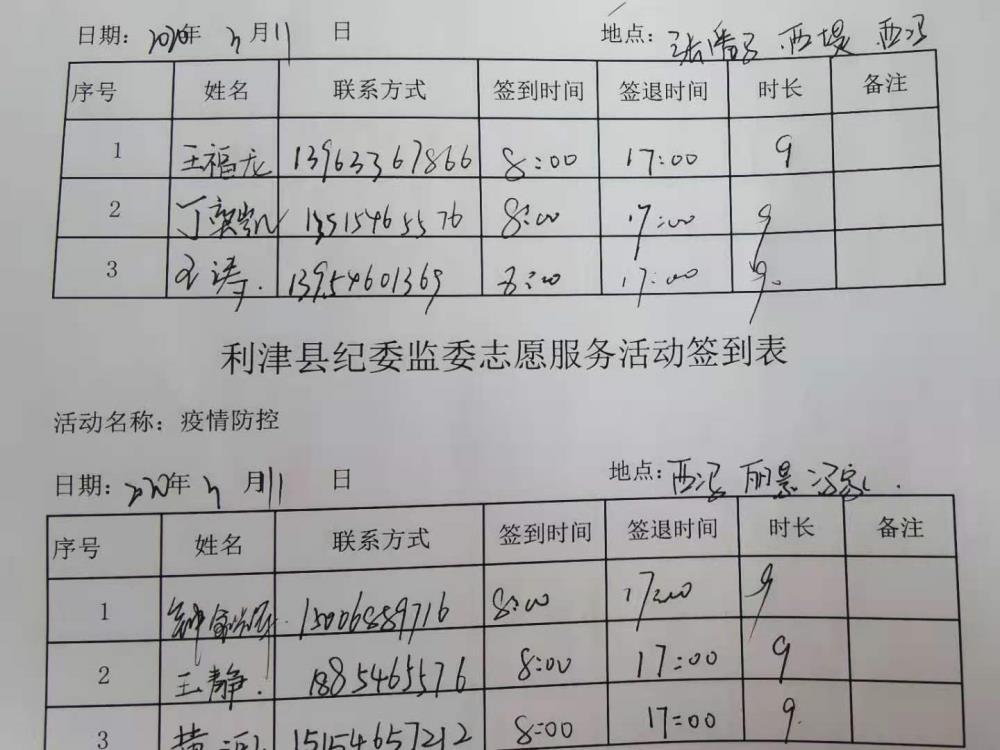 日期：2020年 2月11日 地点： 西堤 西冯
序号 姓名 联系方式 签到时间 签退时间 时长 备注
1 王福龙 13963367866 8:00 17:00 9
2 丁奕凯 13515465576 8:00 17:00 9
3 王涛 13954601369 8:00 17:00 9
利津县纪委监委志愿服务活动签到表
活动名称：疫情防控
日期：2020年 2月11日 地点：西冯 丽景 冯家
序号 姓名 联系方式 签到时间 签退时间 时长 备注
1 15006889716 8:00 17:00 9
2 王静 1885465576 8:00 17:00 9
3 15154657212 8:00 17:00 9